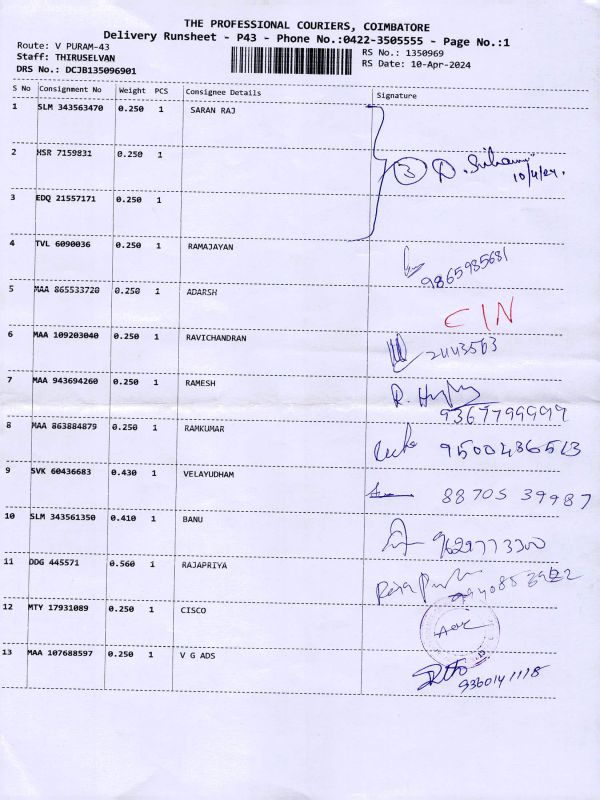 THE PROFESSIONAL COURIERS, COIMBATORE
Delivery Runsheet - P43 - Phone No.:0422-3505555 - Page No.:1
Route: V PURAM-43
Staff: THIRUSELVAN
DRS No.: DCJB135096901
RS No.: 1350969
RS Date: 10-Apr-2024
S No Consignment No Weight PCS Consignee Details Signature
1 SLM 343563470 0.250 1 SARAN RAJ
2 HSR 7159831 0.250 1
3 10/4/24.
3 EDQ 21557171 0.250 1
4 TVL 6090036 0.250 1 RAMAJAYAN
9865985681
5 MAA 865533720 0.250 1 ADARSH CIN
6 MAA 109203040 0.250 1 RAVICHANDRAN 2443563
7 MAA 943694260 0.250 1 RAMESH R.
9367799997
8 MAA 863884879 0.250 1 RAMKUMAR 9500436513
9 SVK 60436683 0.430 1 VELAYUDHAM 88705 39987
10 SLM 343561350 0.410 1 BANU 9629773300
11 DDG 445571 0.560 1 RAJAPRIYA
12 MTY 17931089 0.250 1 CISCO
13 MAA 107688597 0.250 1 V G ADS
9360141118